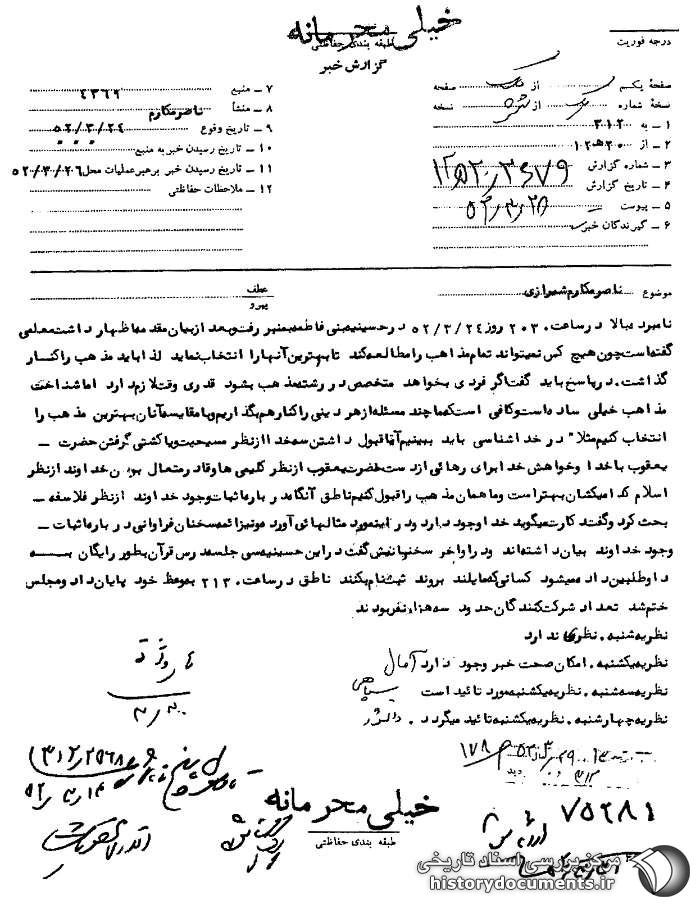 خیلی محرمانه
طبقه بندی حفاظتی
گزارش خبر
درجه فوریت
صفحهٔ یکم از یک صفحه
نسخهٔ شماره یک از شش نسخه
۱ ـ به ۳۱۲
۲ ـ از ۲۰ ه ۱۲
۳ ـ شماره گزارش
۴ ـ تاریخ گزارش
۵ ـ پیوست
۶ ـ گیرندگان خبر
۷ ـ منبع ۴۳۶۹
۸ ـ منشأ ناصر مکارم
۹ ـ تاریخ وقوع ۵۲/۳/۲۴
۱۰ ـ تاریخ رسیدن خبر به منبع
۱۱ ـ تاریخ رسیدن خبر برهبر عملیات محل ۵۲/۳/۲۶
۱۲ ـ ملاحظات حفاظتی
موضوع ناصر مکارم شیرازی
عطف
پیرو
نامبرده بالا در ساعت ۲۰۳۰ روز ۵۲/۳/۲۴ در حسینیه بنی فاطمه بمنبر رفت و بعد از بیان مقدمه اظهار داشت معلمی
گفته است چون هیچ کس نمیتواند تمام مذاهب را مطالعه کند تا بهترین آنها را انتخاب نماید لذا باید مذهب را کنار
گذاشت. در پاسخ باید گفت اگر فردی بخواهد متخصص در رشته مذهب بشود قدری وقت لازم دارد اما شناخت
مذاهب خیلی ساده است و کافی است که ما چند مسئله از هر دینی را کنار هم بگذاریم و با مقایسه آنان بهترین مذهب را
انتخاب کنیم مثلا" در خداشناسی باید ببینیم آیا قبول داشتن سه خدا از نظر مسیحیت و یا کشتی گرفتن حضرت ـ
یعقوب با خدا و خواهش خدا برای رهائی از دست حضرت یعقوب از نظر کلیمی ها و قادر متعال بودن خداوند از نظر
اسلام کدامیکشان بهتر است و ما همان مذهب را قبول کنیم ناطق آنگاه درباره اثبات وجود خداوند از نظر فلاسفه ـ
بحث کرد و گفت دکارت میگوید خدا وجود دارد و در این مورد مثالهائی آورد و نیز ائمه سخنان فراوانی درباره اثبات ـ
وجود خداوند بیان داشته اند و در اواخر سخنانش گفت در این حسینیه سی جلسه درس قرآن بطور رایگان به
داوطلبین داده میشود کسانی که مایلند بروند ثبت نام بکنند ناطق در ساعت ۲۱۳۰ بموعظه خود پایان داد و مجلس
ختم شد تعداد شرکت کنندگان حدود سه هزار نفر بودند
نظریه شنبه. نظری ندارد
نظریه یکشنبه. امکان صحت خبر وجود دارد آمال
نظریه سه شنبه. نظریه یکشنبه مورد تائید است سپاهی
نظریه چهارشنبه. نظریه یکشنبه تائید میگردد. دانشور
خیلی محرمانه
طبقه بندی حفاظتی
مرکز بررسی اسناد تاریخی
historydocuments.ir